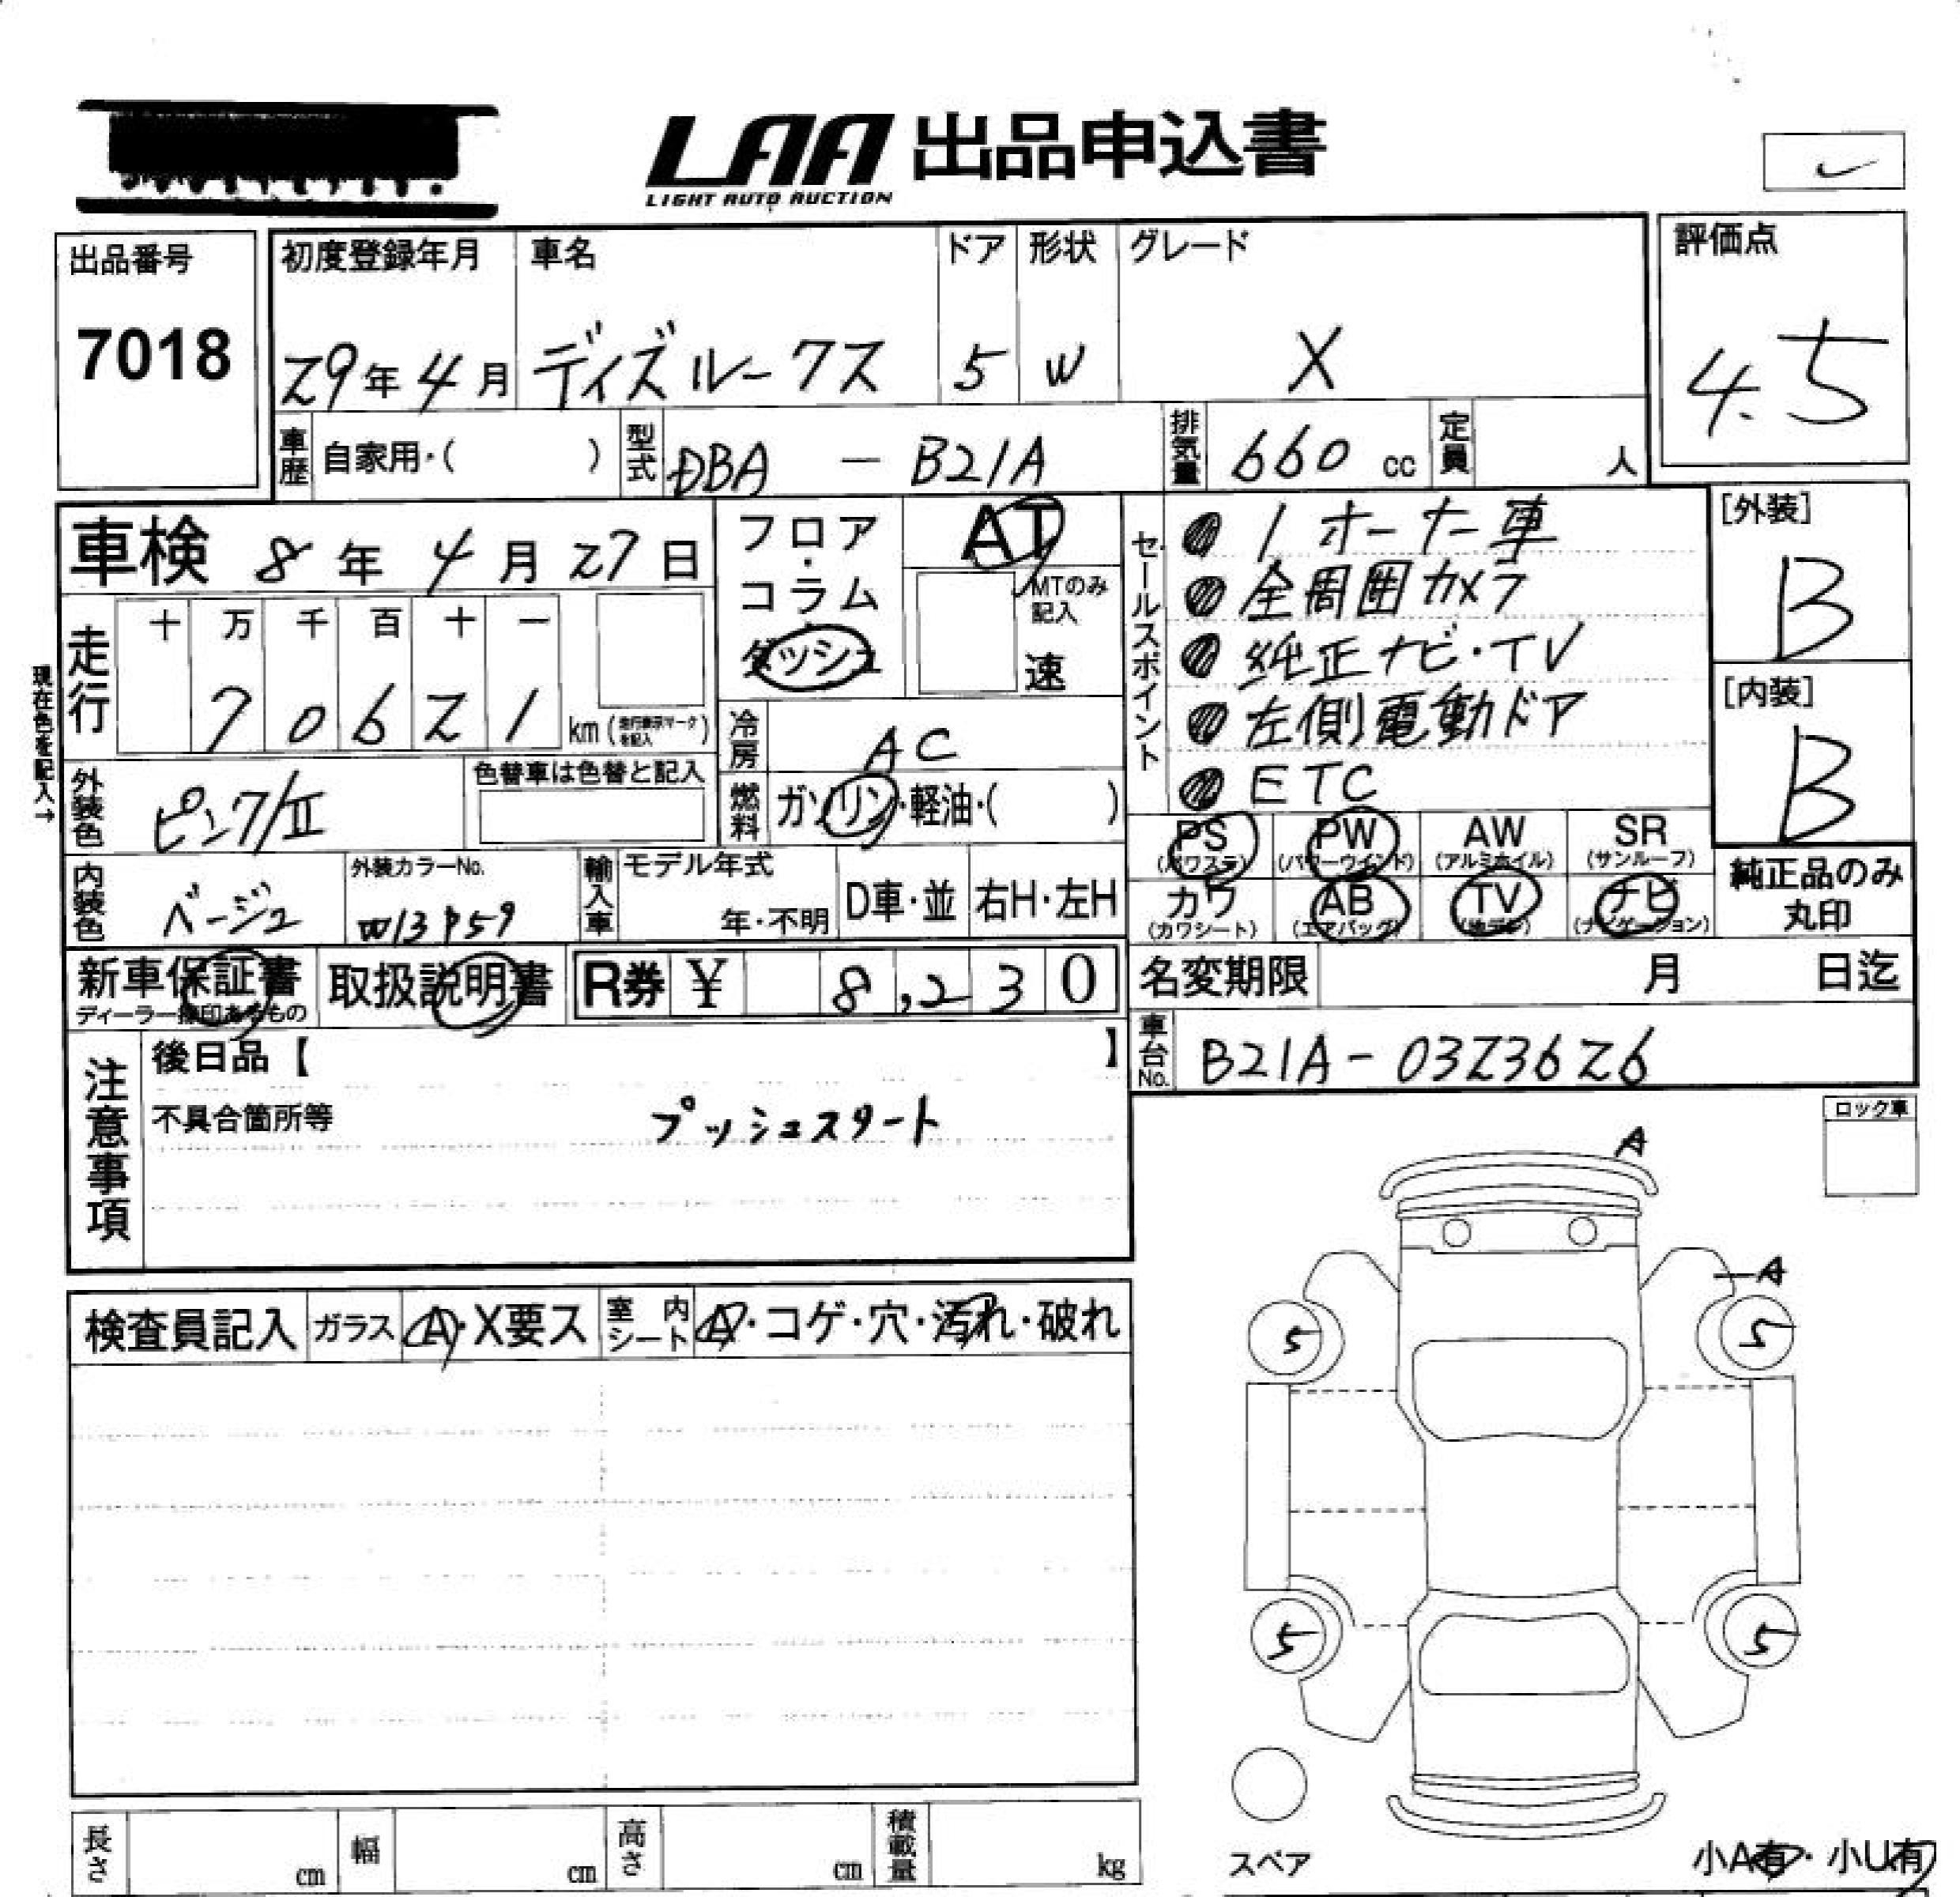 LAA 出品申込書
LIGHT AUTO AUCTION
出品番号
7018
初度登録年月 車名 ドア 形状 グレード 評価点
29年4月 ディズルークス 5 W X 4.5
車歴 自家用・( ) 型式 DBA - B21A 排気量 660 cc 定員 人
車検 8年4月27日
フロア・コラム ダッシュ
AT
MTのみ記入
速
セールスポイント
1オーナー車
全周囲カメラ
純正ナビ・TV
左側電動ドア
ETC
[外装]
B
[内装]
B
現在色を記入→
走行 十 万 千 百 十 一
70621 km (走行表示マークを記入)
冷房 AC
燃料 ガソリン・軽油・( )
外装色 ピンク/II 色替車は色替と記入
内装色 ベージュ 外装カラーNo. W13P59
輸入車 モデル年式 年・不明 D車・並 右H・左H
PS (パワステ) PW (パワーウインド) AW (アルミホイル) SR (サンルーフ)
カワ (カワシート) AB (エアバッグ) TV (地デジ) ナビ (ナビゲーション)
純正品のみ丸印
新車保証書 取扱説明書 R券 ¥ 8,230
ディーラー捺印あるもの
名変期限 月 日迄
車台No. B21A-0323626
注意事項
後日品【 】
不具合箇所等 プッシュスタート
ロック車
A
A
検査員記入 ガラス A・X要ス 室内シート A・コゲ・穴・汚れ・破れ
5 5
5 5
スペア
小A有・小U有
長さ cm 幅 cm 高さ cm 積載量 kg